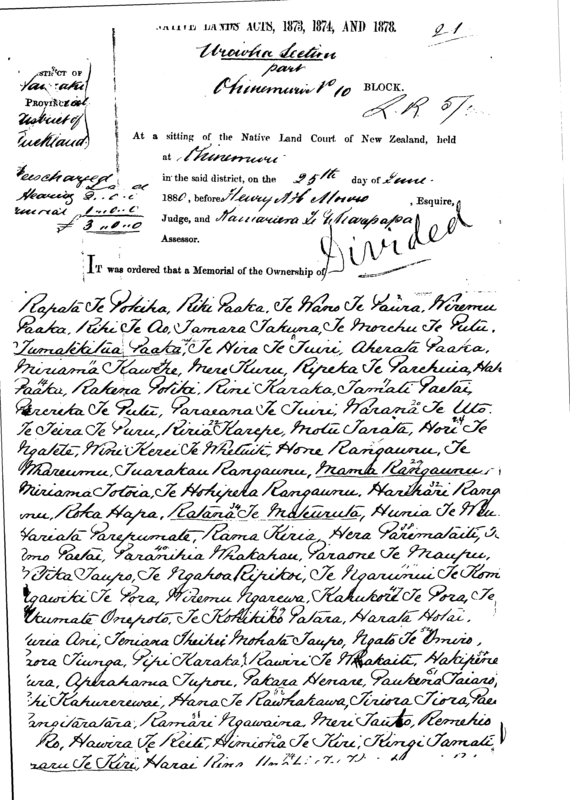 NATIVE LANDS ACTS, 1873, 1874, AND 1878.
21
Section
part
Ohinemuri No 10 BLOCK.
DISTRICT OF
PROVINCIAL
District of
Auckland
At a sitting of the Native Land Court of New Zealand, held
at Ohinemuri
in the said district, on the 25th day of June
1880, before Henry A H Monro, Esquire,
Judge, and
Assessor.
Fees charged
Hearing
£ 3..0..0
Divided
IT was ordered that a Memorial of the Ownership of
Rapata Te Pokiha, Riki Paaka, Te Wano Te Paura, Wiremu
Paaka, Rihi Te Ao, Tamara Takuna, Te Morehu Te Putu,
Tumakititua Paaka, Te Hira Te Tuiri, Aherata Paaka,
Miriama Kawere, Mere Kuru, Ripeka Te Parehuia,
Paaka, Rakena Potiki, Rini Karaka, Tamati Paetai,
Pererika Te Putu, Paraeana Te Tuiri, Warana Te Uto.
Te Teira Te Puru, Riria Karepe, Motu Tarata, Hori Te
Ngatete, Wini Kerei Te Whetuiti, Hone Rangaunu, Te
Whareumu, Tuarakau Rangaunu, Mama Rangaunu,
Miriama Totoia, Te Hohipera Rangaunu, Harihari Rang
unu, Roka Hapa, Ratana Te Makuruta, Hunia Te
Hariata Parepumate, Rama Kiria, Hera Paremataiti,
Paetai, Paranihia Whakahau, Paraone Te Maupu,
Pitika Taupo, Te Ngahoa Ripikoi, Te Ngarunui Te
Ngawiki Te Pora, Wiremu Ngarewa, Kahukore Te Pora, Te
Ukumate Onepoto, Te Kohikiko Patara, Harata Hotai,
Ani, Teniana Iheihei, Mohata Taupo, Ngato Te
Tiunga, Pipi Karaka, Rawiri Te Whakaiti, Hakipene
Aperahama Tupou, Pakara Henare, Paukena Taiaro,
Kahurerewai, Hana Te Rawhakawa, Tiriora Tiora,
Rangitaratara, Ramari Ngawaina, Meri Tauto, Remehio
Hawira Te Reiti, Himiona Te Kiri, Kingi Tamati,
Te Kiri, Harai